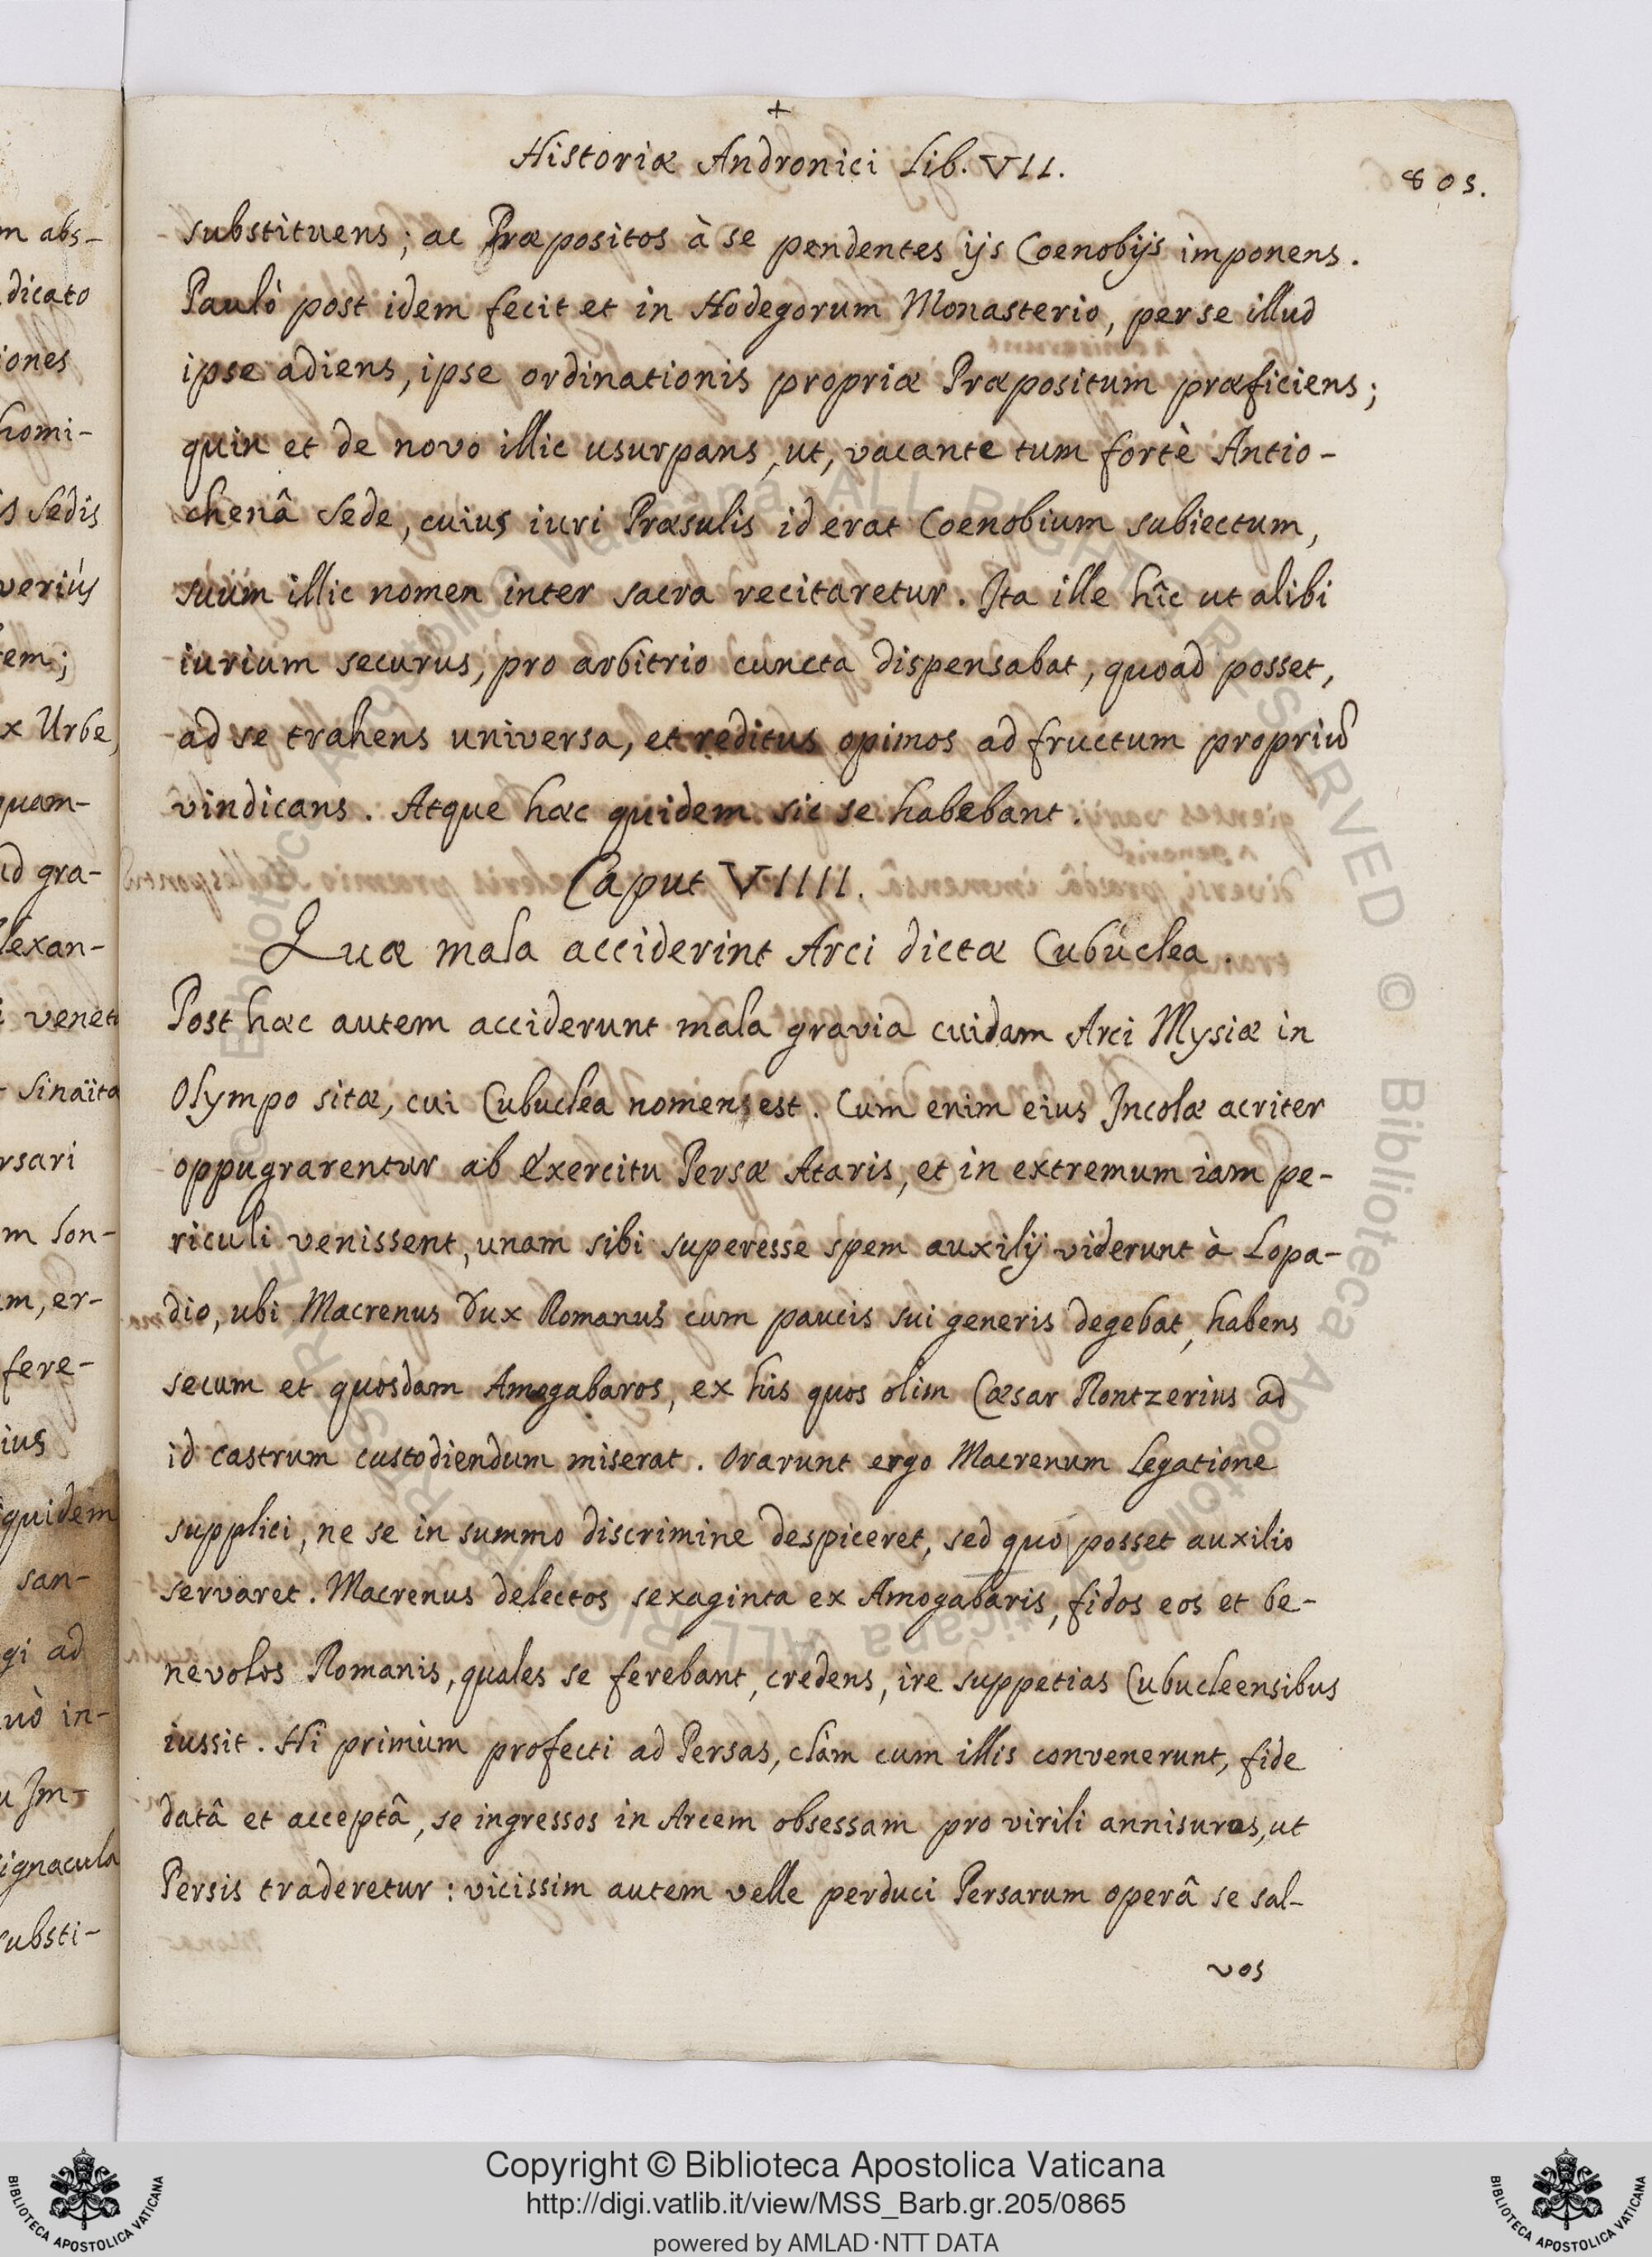 +
Historiæ Andronici Lib. VII.
805.
substituens; ac Præpositos à se pendentes ijs Coenobijs imponens.
Paulò post idem fecit et in Hodegorum Monasterio, per se illud
ipse adiens, ipse ordinationis propriæ Præpositum præficiens;
quin et de novo illic usurpans, ut, vacante tum fortè Antio-
chenâ Sede, cuius iuri Præsulis id erat Coenobium subiectum,
suum illic nomen inter sacra recitaretur. Ita ille hîc ut alibi
iurium securus, pro arbitrio cuncta dispensabat, quoad posset,
ad se trahens universa, et reditus opimos ad fructum propriũ
vindicans. Atque hæc quidem sic se habebant.
Caput VIIII.
Quæ mala acciderint Arci dictæ Cubuclea.
Post hæc autem acciderunt mala gravia cuidam Arci Mysiæ in
Olympo sitæ, cui Cubuclea nomen est. Cum enim eius Incolæ acriter
oppugrarentur ab Exercitu Persæ Ataris, et in extremum iam pe-
riculi venissent, unam sibi superesse spem auxilij viderunt à Lopa-
dio, ubi Macrenus Dux Romanus cum paucis sui generis degebat, habens
secum et quosdam Amogabaros, ex his quos olim Cæsar Rontzerius ad
id castrum custodiendum miserat. Orarunt ergo Macrenum Legatione
supplici, ne se in summo discrimine despiceret, sed quo posset auxilio
servaret. Macrenus delectos sexaginta ex Amogabaris, fidos eos et be-
nevolos Romanis, quales se ferebant, credens, ire suppetias Cubucleensibus
iussit. Hi primùm profecti ad Persas, clàm cum illis convenerunt, fide
datâ et acceptâ, se ingressos in Arcem obsessam pro virili annisuros, ut
Persis traderetur: vicissim autem velle perduci Persarum operâ se sal-
vos
m abs-
dicato
iones
homi-
is Sedis
veriùs
tem;
x Urbe,
quam-
ud gra-
lexan-
Sinaïta
rsari
m Lon-
m, er-
fere-
ius
quidem
san-
gi ad
uò in-
u Im-
ignacula
substi-
Copyright © Biblioteca Apostolica Vaticana
http://digi.vatlib.it/view/MSS_Barb.gr.205/0865
powered by AMLAD·NTT DATA
BIBLIOTECA APOSTOLICA VATICANA
BIBLIOTECA APOSTOLICA VATICANA